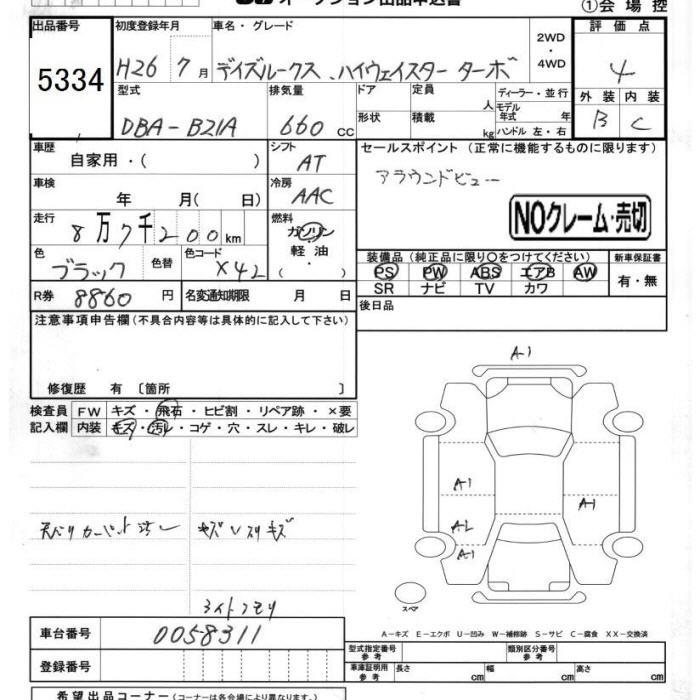 オークション出品申込書
①会場控
出品番号 初度登録年月 車名・グレード 2WD・4WD 評価点
5334 H26 7月 デイズルークス、ハイウェイスター ターボ 4
型式 排気量 ドア 定員 人 ディーラー・並行 外装 内装
DBA-B21A 660cc 形状 積載 kg モデル年式 年 ハンドル 左・右 B C
車歴 自家用・( ) シフト AT セールスポイント (正常に機能するものに限ります)
車検 年 月( 日) 冷房 AAC アラウンドビュー
走行 8万7千200km 燃料 ガソリン・軽油・( ) NOクレーム・売切
色 ブラック 色替 色コード X42 装備品(純正品に限り〇をつけてください) 新車保証書
PS PW ABS エアB AW 有・無
SR ナビ TV カワ
R券 8860円 名変通知期限 月 日 後日品
注意事項申告欄(不具合内容等は具体的に記入して下さい)
修復歴 有 〔箇所 〕
検査員 FW キズ・飛石・ヒビ割・リペア跡・×要
記入欄 内装 キズ・汚レ・コゲ・穴・スレ・キレ・破レ
A-1
A1
A-1
A1
カーペット 汚レ
スペア
車台番号 0058311
A-キズ E-エクボ U-凹み W-補修跡 S-サビ C-腐食 XX-交換済
型式指定番号 参考 類別区分番号 参考
登録番号 車庫証明用 参考 長さ cm 幅 cm 高さ cm
希望出品コーナー(コーナーは各会場により異なります)